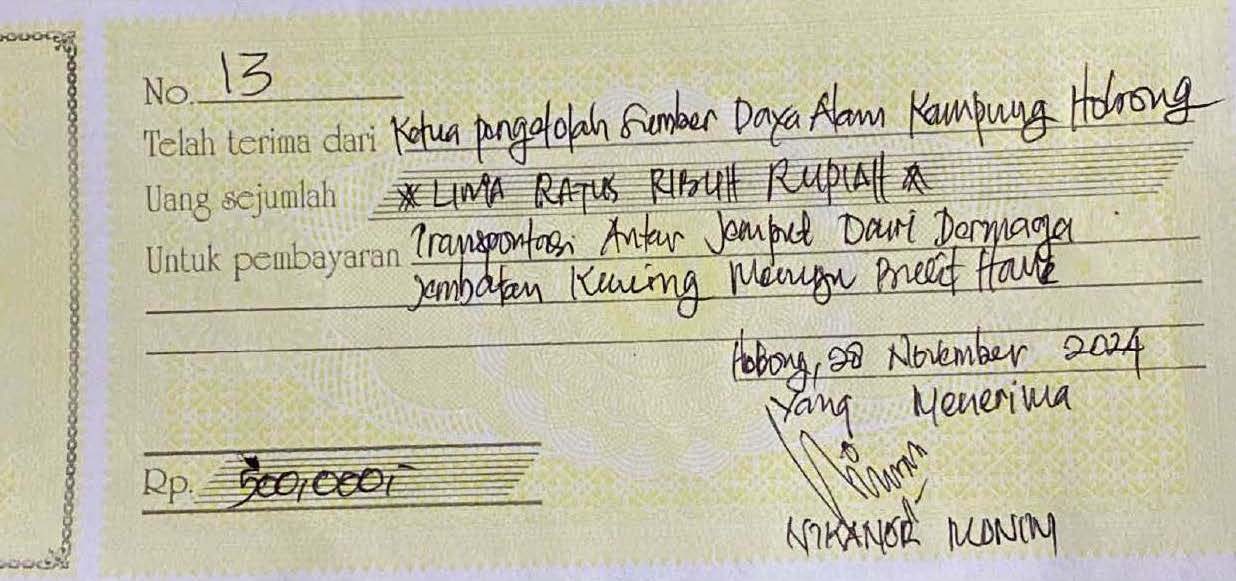 No. 13
Telah terima dari Ketua pengelolah Sumber Daya Alam Kampung Hobong
Uang sejumlah * LIMA RATUS RIBUH RUPIAH *
Untuk pembayaran Transportasi Antar Jemput Dari Dermaga
Jembatan Kuning Menuju
Hobong, 28 November 2024
Yang Menerima
Rp. 500,000,-
NIKANOR MONIM